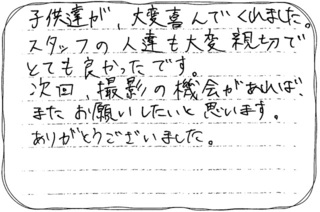 子供達が、大変喜んでくれました。
スタッフの人達も大変親切で
とても良かったです。
次回、撮影の機会があれば、
またお願いしたいと思います。
ありがとうございました。